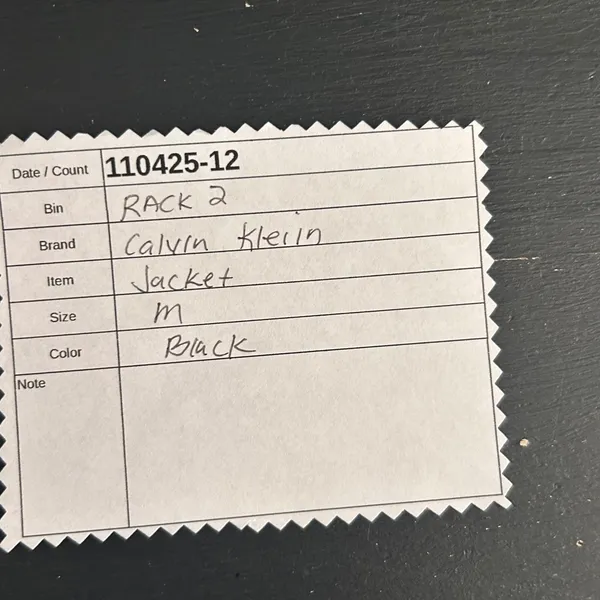 Date / Count 110425-12
Bin RACK 2
Brand Calvin Kleiin
Item Jacket
Size M
Color Black
Note